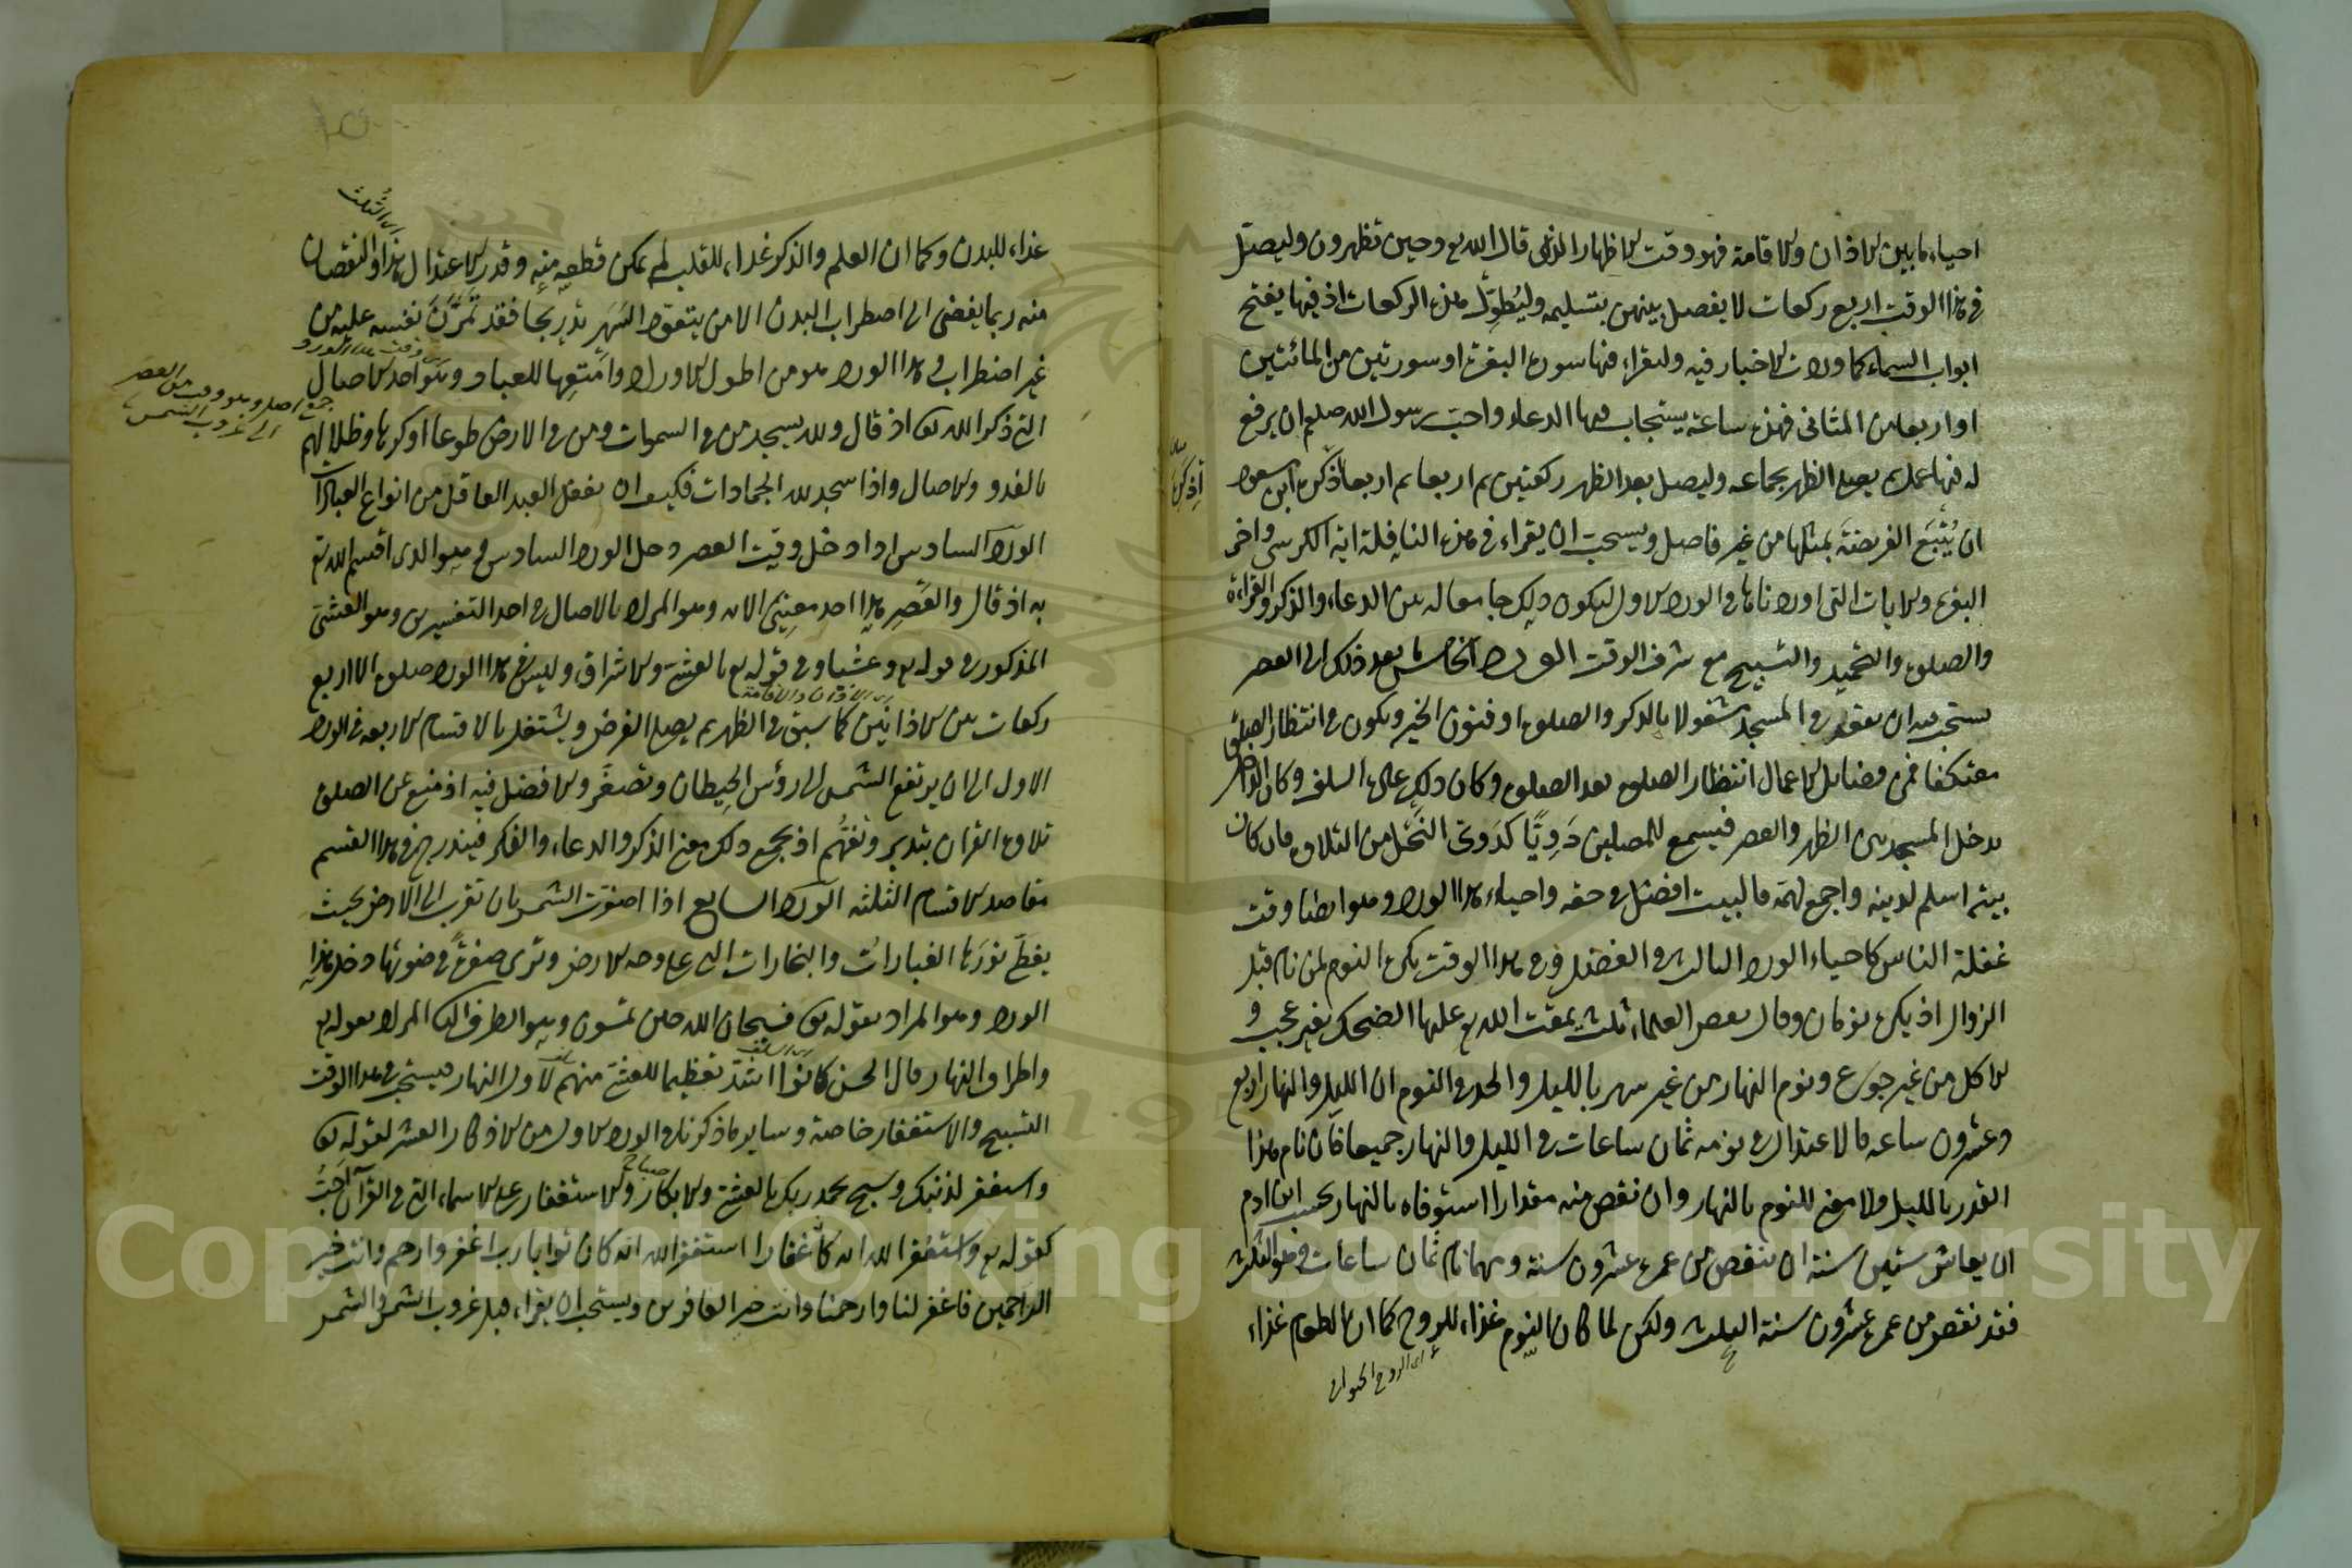 احياء ما بين الاذان والاقامة فهو وقت الاظهار الذى قال الله تع وحين تظهرون وليصل
فى هذا الوقت اربع ركعات لا يفصل بينهن بتسليمه وليطول هذه الركعات اذ فيها يفتح
ابواب السماء كما وردت الاخبار فيه وليقراء فيها سورة البقرة او سورتين من المائتين
او اربعا من المثانى فهذه ساعة يستجاب فيها الدعاء واحب رسول الله صلعم ان يرفع
له فيها عمل ثم يصلى الظهر بجماعه وليصل بعد الظهر ركعتين ثم اربعا ثم اربعا فذكره ابن مسعود
ان يُتبَع الفريضة بمثلها من غير فاصل ويستحب ان يقراء فى هذه النافلة اية الكرسى واخر
البقرة والايات التى اوردناها فى الورد الاول ليكون ذلك جامعا له بين الدعاء والذكر والقراءة
والصلوة والتحميد والتسبيح مع شرف الوقت الورد الخامس ما بعد ذلك الى العصر
يستحب فيه ان يقعد فى المسجد مشغولا بالذكر والصلوة او فنون الخير ويكون فى انتظار الصلوة
معتكفا فمن فضائل الاعمال انتظار الصلوة بعد الصلوة وكان ذلك عادة السلف وكان الداخل
يدخل المسجد بين الظهر والعصر فيسمع للمصلين دَوِيًّا كدَوىّ النحل من التلاوة فان كان
بيته اسلم لدينه واجمع لهمه فالبيت افضل فى حقه واحياء هذا الورد وهو ايضا وقت
غفلة الناس كاحياء الورد الثالث فى الفضل وفى هذا الوقت يكره النوم لمن نام قبل
الزوال اذ يكره نومان وقال بعض العلماء ثلث يمقت الله تع عليها الضحك بغير عجب و
الاكل من غير جوع ونوم النهار من غير سهر بالليل والحد فى النوم ان الليل والنهار اربع
وعشرون ساعه فالاعتدال فى نومه ثمان ساعات فى الليل والنهار جميعا فان نام هذا
القدر بالليل فلا معنى للنوم بالنهار وان نقص منه مقدارا استوفاه بالنهار بحسب ابن ادم
ان يعاش ستين سنة ان ينقص من عمره عشرون سنة ومهما نام ثمان ساعات وهو الثلث
فقد نقص من عمره عشرون سنة الثلث ولكن لما كان النوم غذاء للروح كما ان الطعام غذاء
اى الروح الحيوانى
اى الثلث
غذاء للبدن وكما ان العلم والذكر غذاء للقلب لم يمكن قطعه منه وقدر الاعتدال هذا والنقصان
منه ربما يفضى الى اضطراب البدن الا من يتعود السهر بتدريجا فقد تمرّن نفسه عليه من
غير اضطراب فى هذا الورد هو من اطول الاوراد وامتعها للعباد وهو احد الاصال
جمع اصيل وهو وقت من العصر
الى غروب الشمس
التى ذكر الله تعا اذ قال ولله يسجد من فى السموات ومن فى الارض طوعا او كرها وظلالهم
بالغدو والاصال واذا سجد لله الجمادات فكيف ان يغفل العبد العاقل من انواع العبادات
الورد السادس اذا دخل وقت العصر دخل الورد السادس وهو الذى اقسم الله تع
به اذ قال والعصر هذا احد معينى الاية وهو المراد بالاصال فى احد التفسيرين وهو العشى
المذكور فى قوله تع وعشيا وفى قوله تع بالعشى والاشراق وليس فى هذا الورد صلوة الا اربع
اى الاذان والاقامة
ركعات بين الاذانين كما سبق فى الظهر ثم يصلى الفرض ويشتغل بالاقسام الاربعه فى الورد
الاول الى ان يرتفع الشمس الى رؤس الحيطان وتصفر والافضل فيه اذ منع عن الصلوة
تلاوة القران بتدبر وتفهُّم اذ يجمع ذلك معنى الذكر والدعاء والفكر فيندرج فى هذا القسم
مقاصد الاقسام الثلثه الورد السابع اذا اصفرت الشمس بان تقرب الى الارض بحيث
يغطّى نورَها الغبارات والبخارات التى على وجه الارض وترى صفرةً فى ضوئها دخل هذا
الورد وهو المراد بقوله تعا فسبحان الله حين تمسون وهو الطرف الثانى المراد بقوله تع
واطراف النهار قال الحسن كانوا اشد تعظيما للعشى منهم لاول النهار فيستحب فى هذا الوقت
التسبيح والاستغفار خاصة وساير ما ذكرناه فى الورد الاول من الاذكار العشر لقوله تعا
واستغفر لذنبك وسبح بحمد ربك بالعشى والابكار والاستغفار على الاسماء التى فى القرآن احَبُّ
كقوله تع واستغفر الله انه كان غفارا استغفر الله انه كان توابا رب اغفر وارحم وانت خير
الراحمين فاغفر لنا وارحمنا وانت خير الغافرين ويستحب ان يقراء قبل غروب الشمس والشمس
Copyright © King Saud University